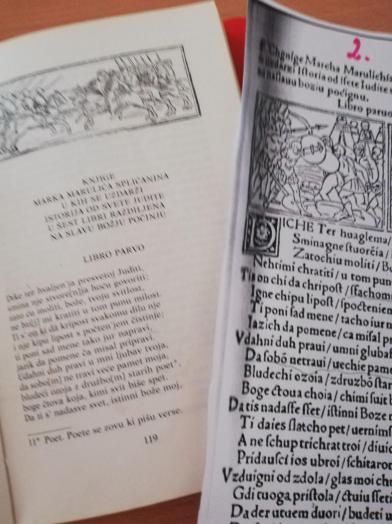 KNJIGE
MARKA MARULIĆA SPLIĆANINA
U KIH SE UZDARŽI
ISTORIJA OD SVETE JUDITE
U ŠEST LIBRI RAZDILJENA
NA SLAVU BOŽJU POČINJU
LIBRO PARVO
Dike ter hvaljen'ja presvetoj Juditi,
smina nje stvorenja hoću govoriti;
zato ću moliti, bože, tvoju svitlost,
ne htij mi kratiti u tom punu milost.
Ti s' on ki da kripost svakomu dilu nje
i nje kipu lipost s počten'jem čistinje;
ti poni sad mene tako jur napravi,
jazik da pomene ča misal pripravi.
Udahni duh pravi u mni ljubav tvoja,
da sobo[m] ne travi veće pamet moja,
bludeći ozoja z družbo[m] starih poet*,
boge čtova koja, kimi svit biše spet.
Da ti s' nadasve svet, istinni bože moj,
11* Poet. Poete se zovu ki pišu verse.
119
2.
Libro paruo
DICHE Ter huaglema
Sminagne stuorčia /
Zatochiu moliti / B
Nehtimi chratiti / u tom pun
Tis on chi da chripost / sfachom
Igne chipu lipost / spočteniem
Ti poni sad mene / tacho iur na
Iazich da pomene / ča misal pr
Vdahni duh praui / umni gluba
Da sobō netraui / uechie pame
Bludechi ozoia / zdruzbō sta
Boge čtoua choia / chimi suit b
Da tis nadasse sset / istinni Boze m
Ti daies slatcho pet / uernim
A ne schup trichrat troi / diuic
Pridausci ios ubroi / schitaro
Vzduigni od zdola / glas moi chi
Gdi tuoga pristola / čtuiu sseti
Da der utuem duori / budeti u